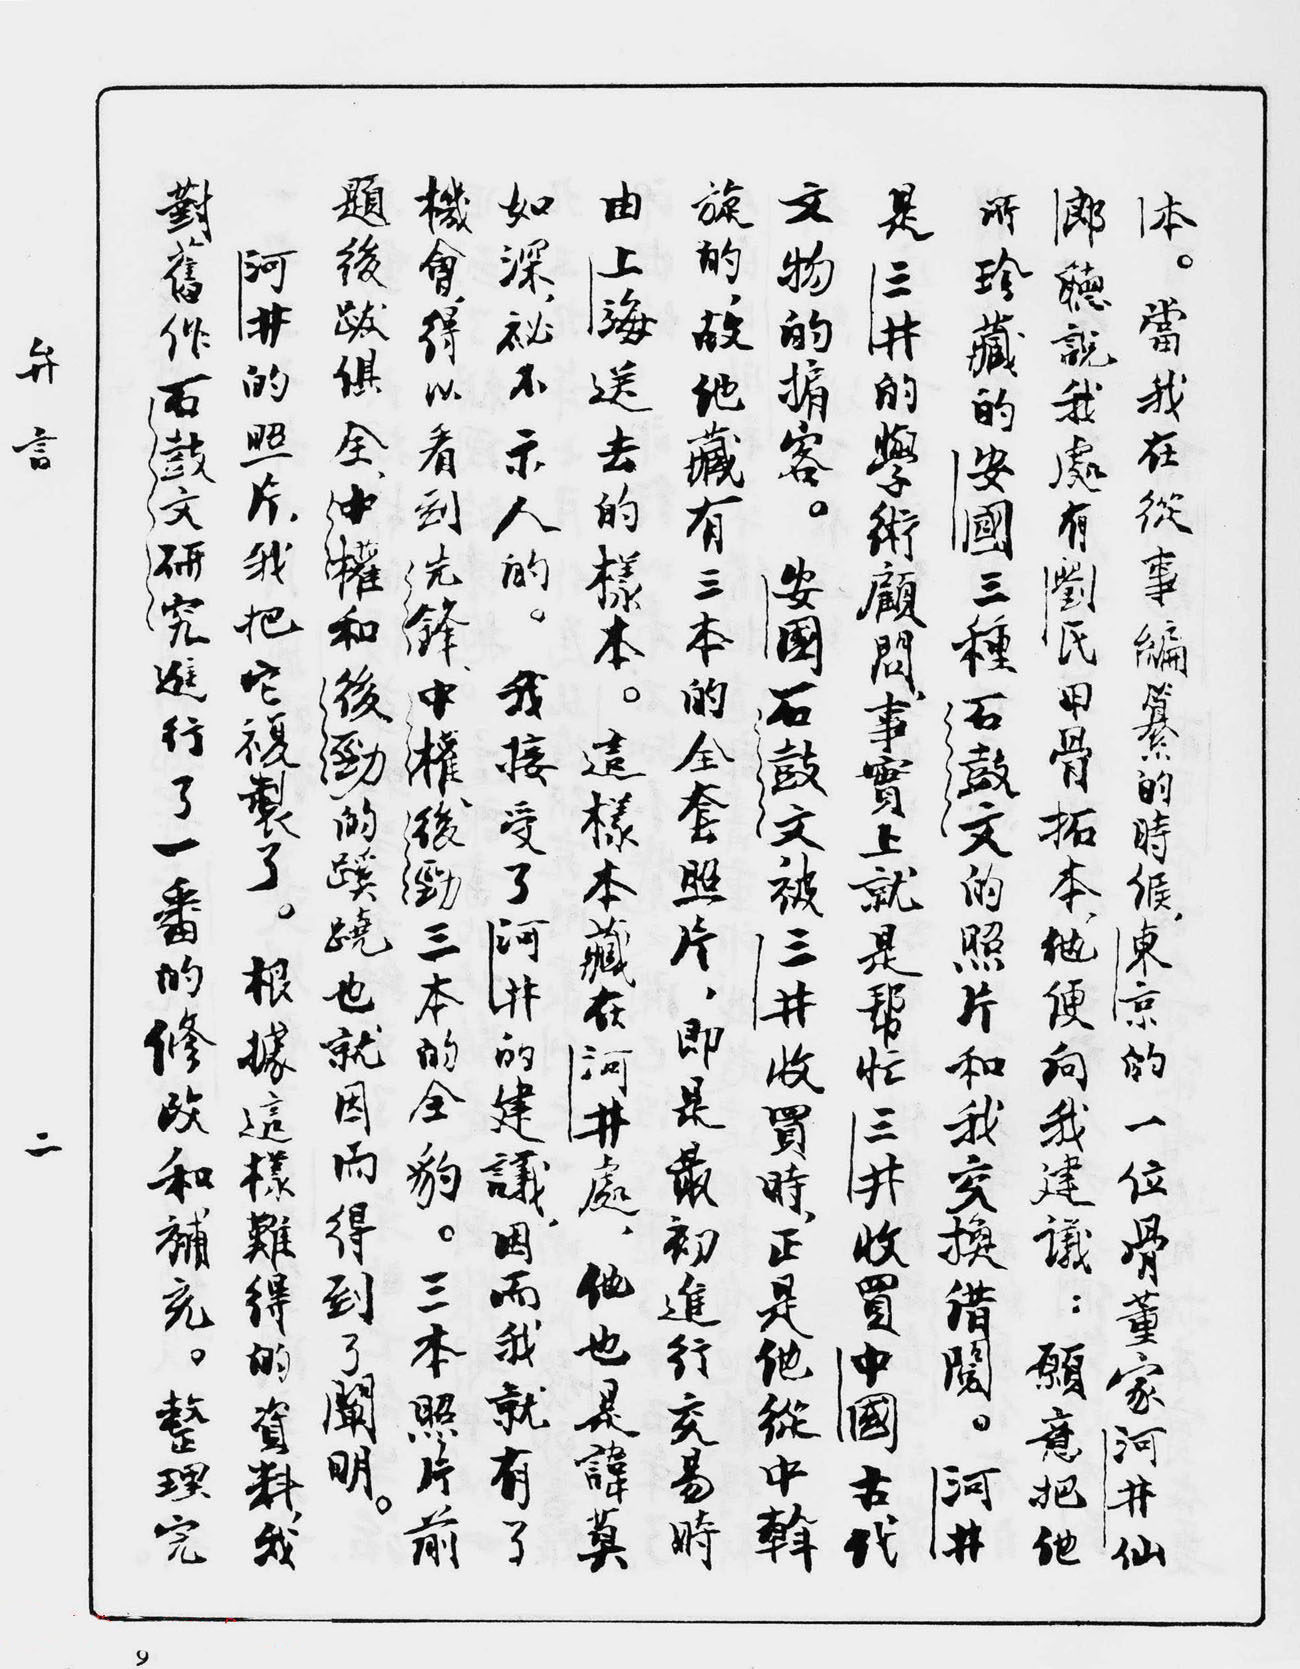 本。當我在從事編纂的時候，東京的一位骨董家河井仙
郎聽說我處有劉氏甲骨拓本，他便向我建議：願意把他
所珍藏的安國三種石鼓文的照片和我交換借閱。河井
是三井的學術顧問，事實上就是幫忙三井收買中國古代
文物的掮客。安國石鼓文被三井收買時，正是他從中斡
旋的，故他藏有三本的全套照片，即是最初進行交易時
由上海送去的樣本。這樣本藏在河井處，他也是諱莫
如深，祕不示人的。我接受了河井的建議，因而我就有了
機會，得以看到先鋒、中權、後勁三本的全豹。三本照片前
題後跋俱全，中權和後勁的蹊蹺也就因而得到了闡明。
河井的照片，我把它複製了。根據這樣難得的資料，我
對舊作石鼓文研究進行了一番的修改和補充。整理完
弁言
二
9